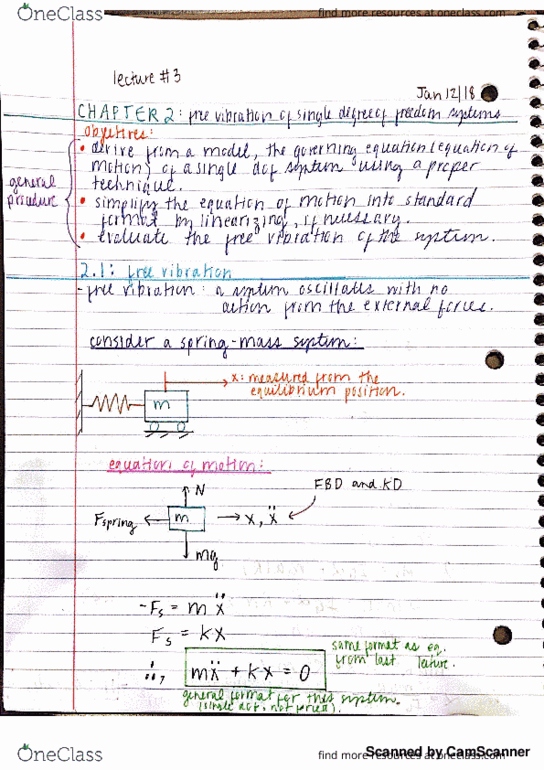 OneClass
find more resources at oneclass.com
lecture #3
Jan 12/18
CHAPTER 2: free vibration of single degree of freedom systems
objectives:
• derive from a model, the governing equation (equation of
motion) of a single dof system using a proper
technique.
general
procedure
• simplify the equation of motion into standard
format by linearizing, if necessary.
• evaluate the free vibration of the system.
2.1: free vibration
- free vibration: a system oscillates with no
action from the external forces.
consider a spring-mass system:
x: measured from the
equilibrium position.
m
equations of motion:
FBD and KD
N
Fspring
m
x, ẍ
mg
-Fs = mẍ
Fs = kx
∴, mẍ + kx = 0
same format as eq.
from last lecture.
general format for this system.
(single dof, not forced).
OneClass
find more resources at oneclass.com
Scanned by CamScanner